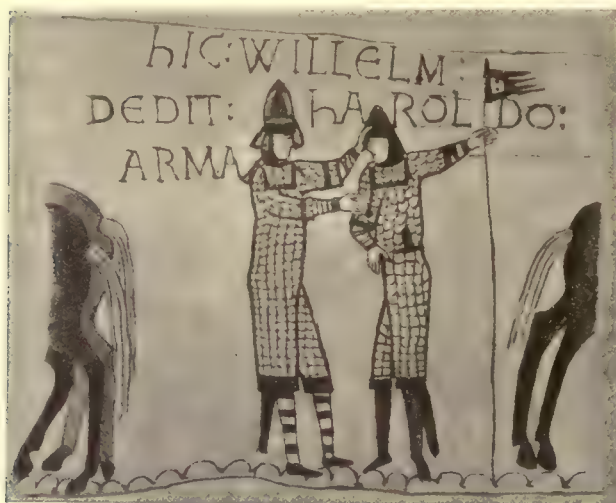 hIC: WILLELM:
DEDIT: hAROLDO:
ARMA